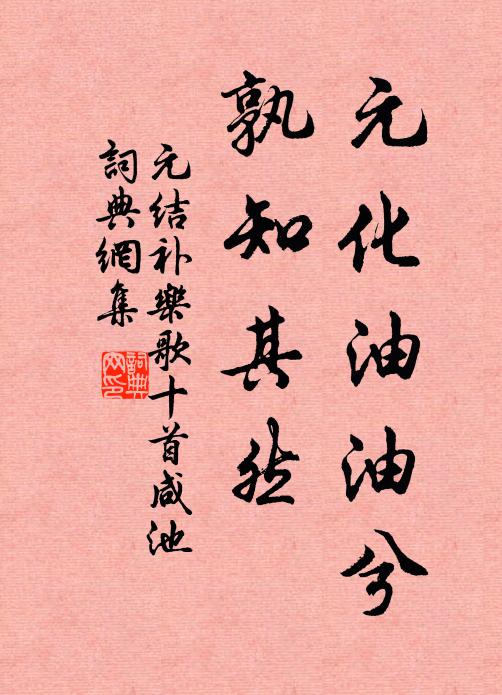 元化油油兮
孰知其然
元结补樂歌十首咸池
詞典網集
詞典網印